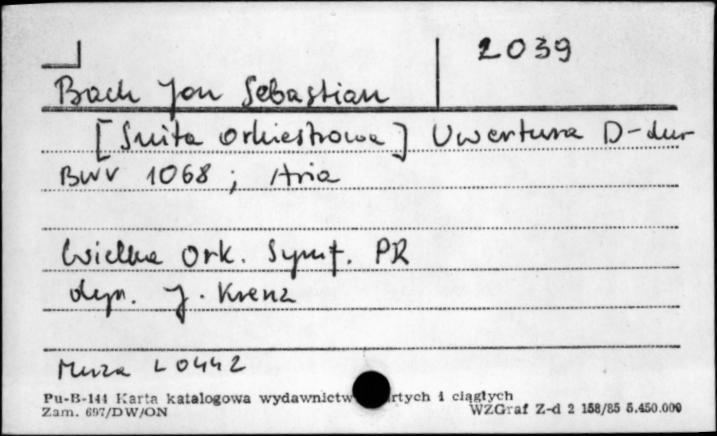 2039
Bach Jan Sebastian
[Suita orkiestrowa] Uwertura D-dur
BWV 1068 ; Aria
Wielka Ork. Symf. PR
dyr. J. Krenz
Muza L 0442
Pu-B-144 Karta katalogowa wydawnictw rtych i ciągłych
Zam. 697/DW/ON WZGraf Z-d 2 158/85 5.450.000